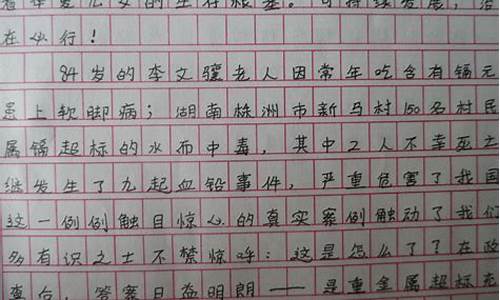 着华夏儿女的生存根基。可持续发展,治
在必行!
84岁的李文骧老人因常年吃含有镉元
患上软脚病;湖南株洲市新马村150名村民
属镉超标的水而中毒,其中2人不幸死亡
继发生了九起血铅事件,严重危害了我国
这一例例触目惊心的真实案例触动了我们
多有识之士不禁惊呼:这是怎么了?在政
查后,答案日益明朗——是重金属超标充